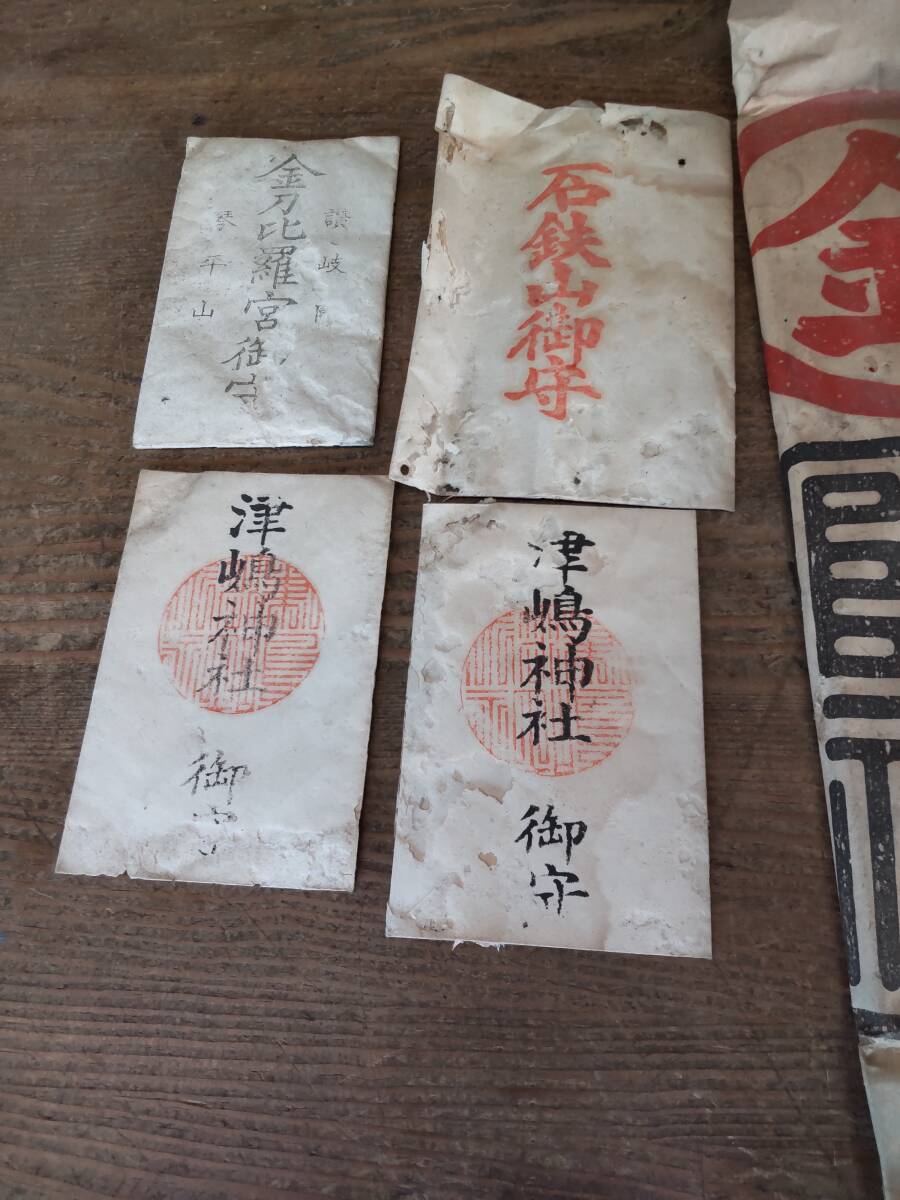 讃岐国
金刀比羅宮御守
琴平山
石鉄山御守
津嶋神社
御守
津嶋神社
御守
金